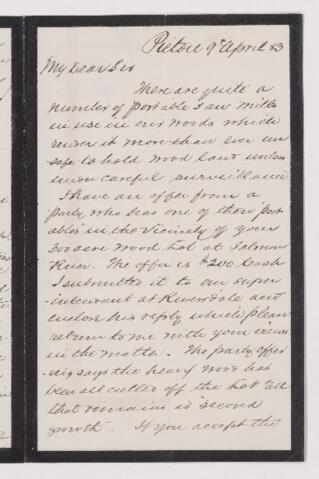 Pictou 9th April 83
My Dear Sir
There are quite a
number of portable Saw Mills
in use in our woods which
render it more than ever un
safe to hold wood land unless
under careful surveillance
I have an offer from a
party who has one of these port
ables in the Vicinity of your
300 acre Wood lot at Salmon
River. The offer is $200 Cash
I submitted it to our super
intendant at Riversdale and
enclose his reply which please
return to me with your views
in the matter. The party offer
ing says the heavy wood has
been all culled off the lot all
that remains is "second
growth". If you accept the